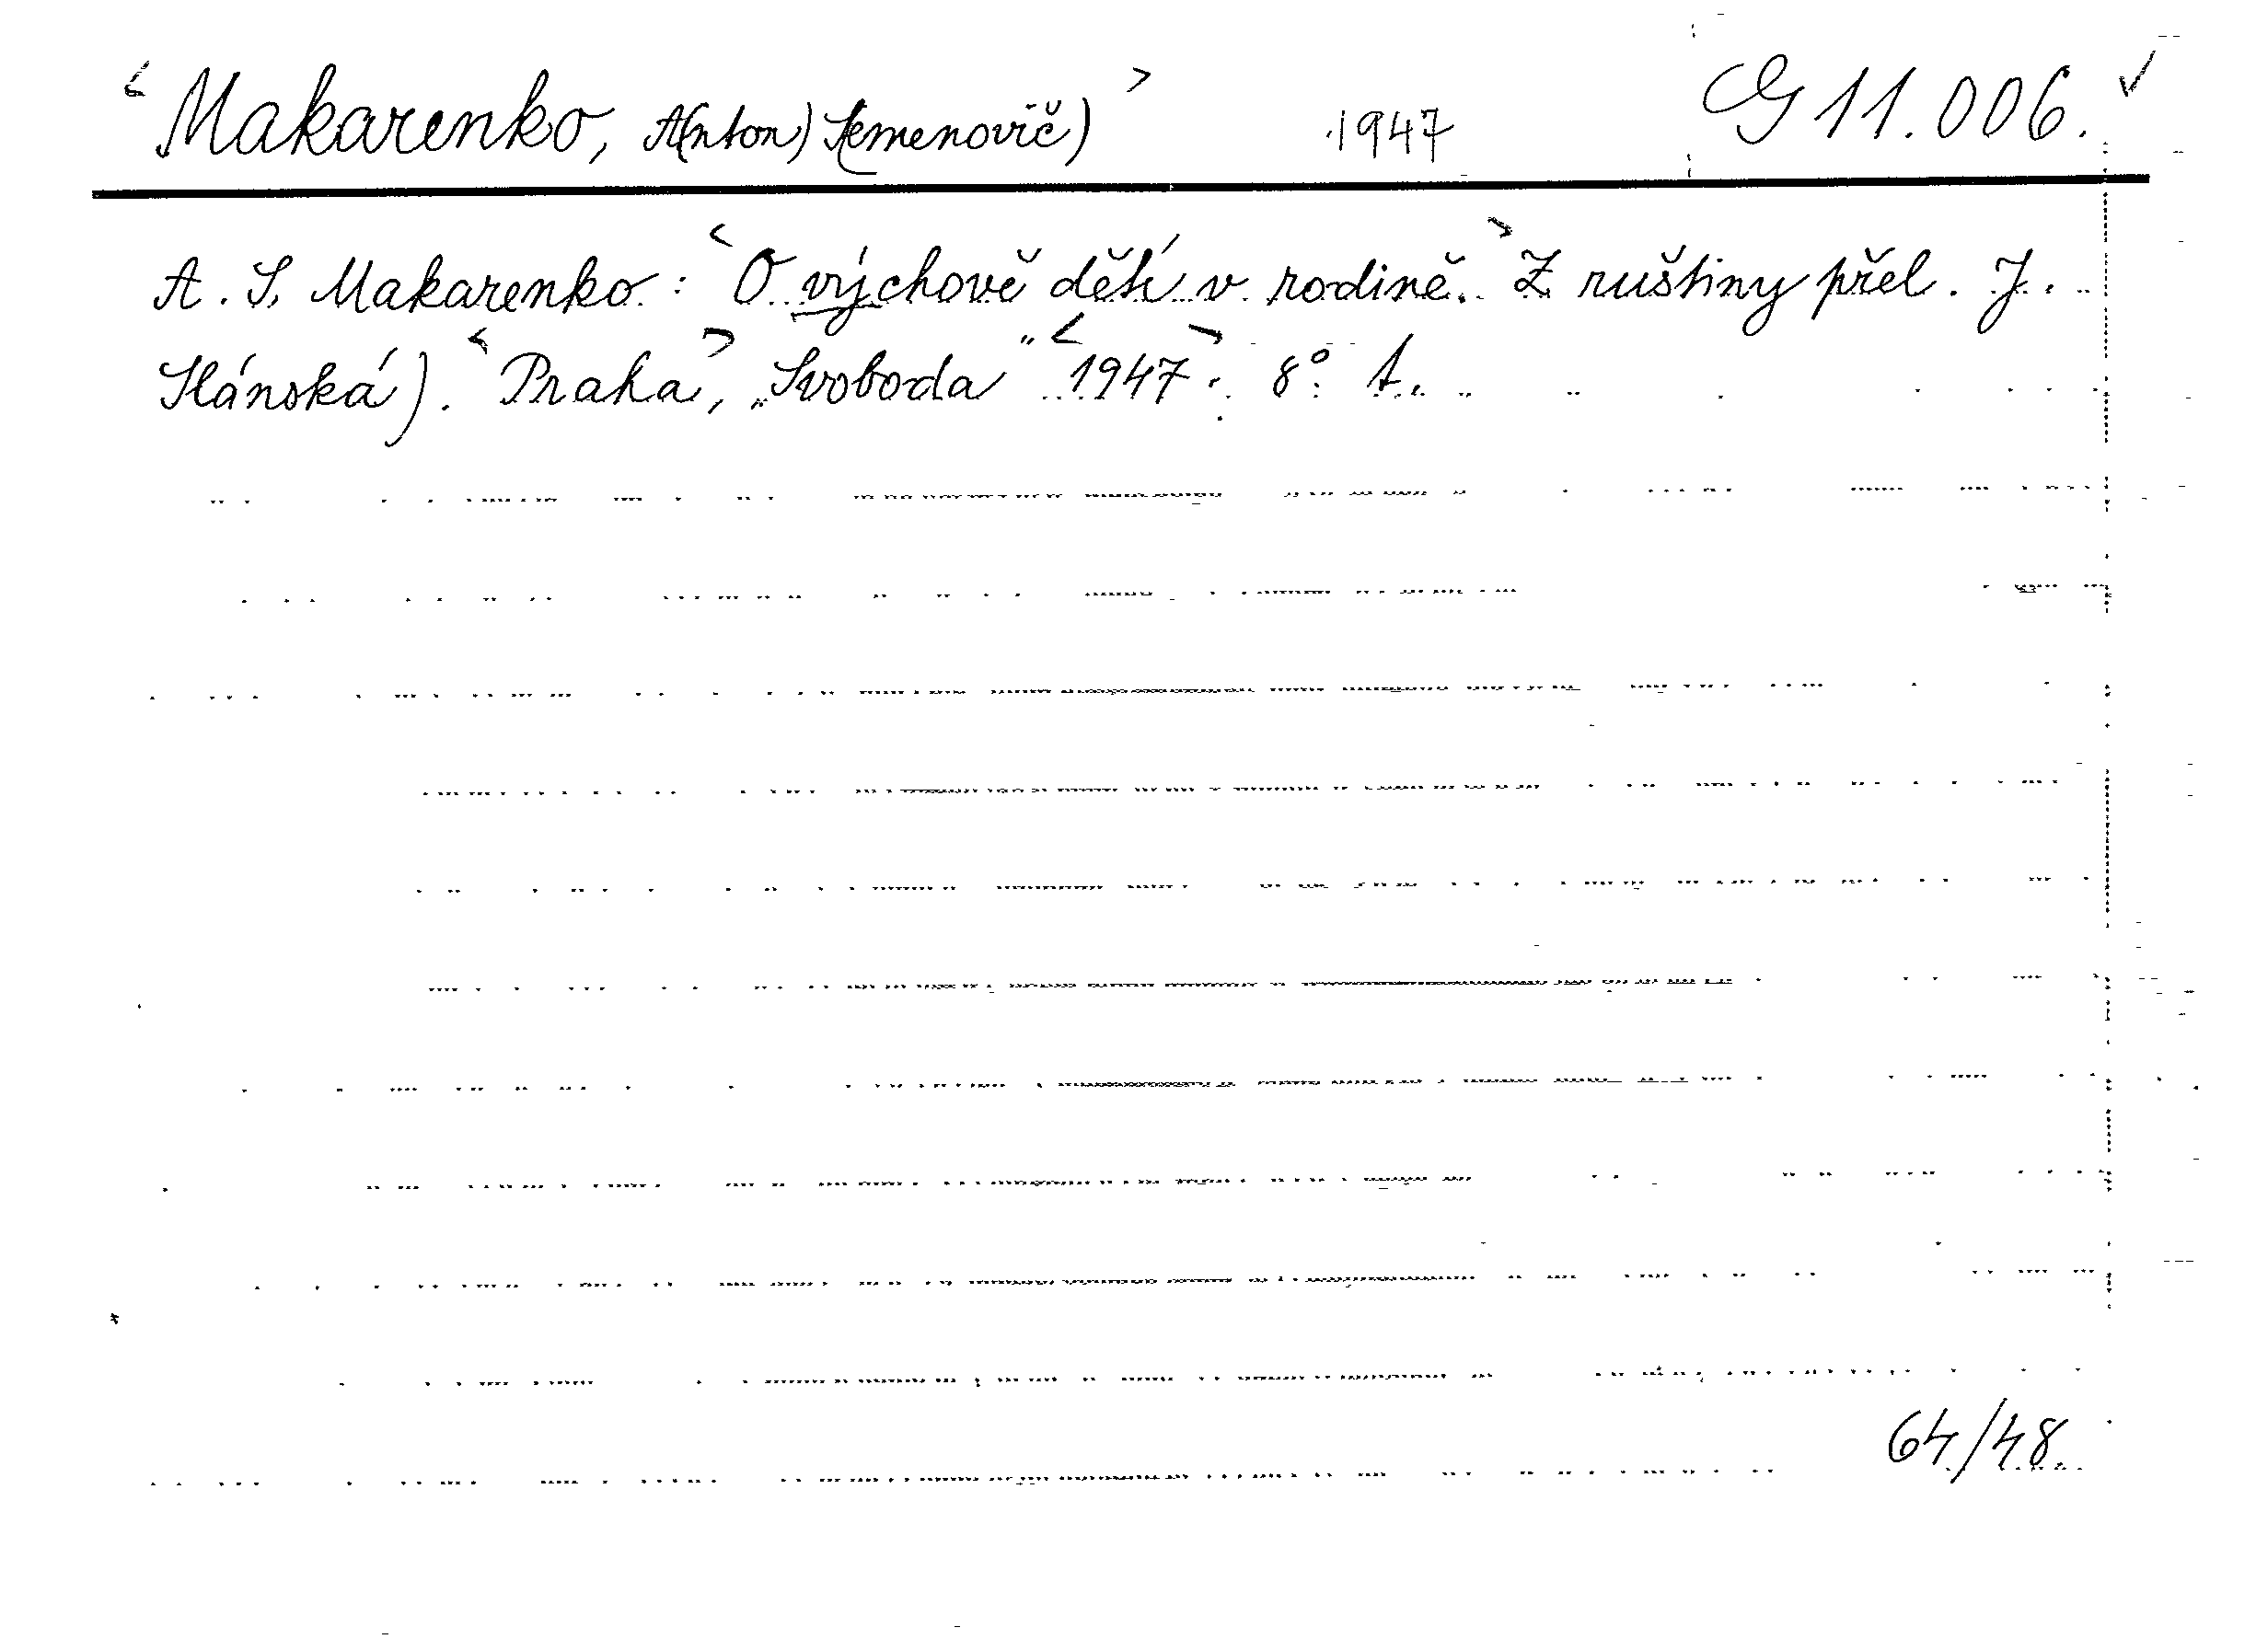 <Makarenko, A(nton) S(emenovič)> 1947 G 11.006. ✓
A. S. Makarenko: <O výchově dětí v rodině.> Z ruštiny přel. J.
Slánská). <Praha>, „Svoboda" <1947>. 8°. 1.
64/48